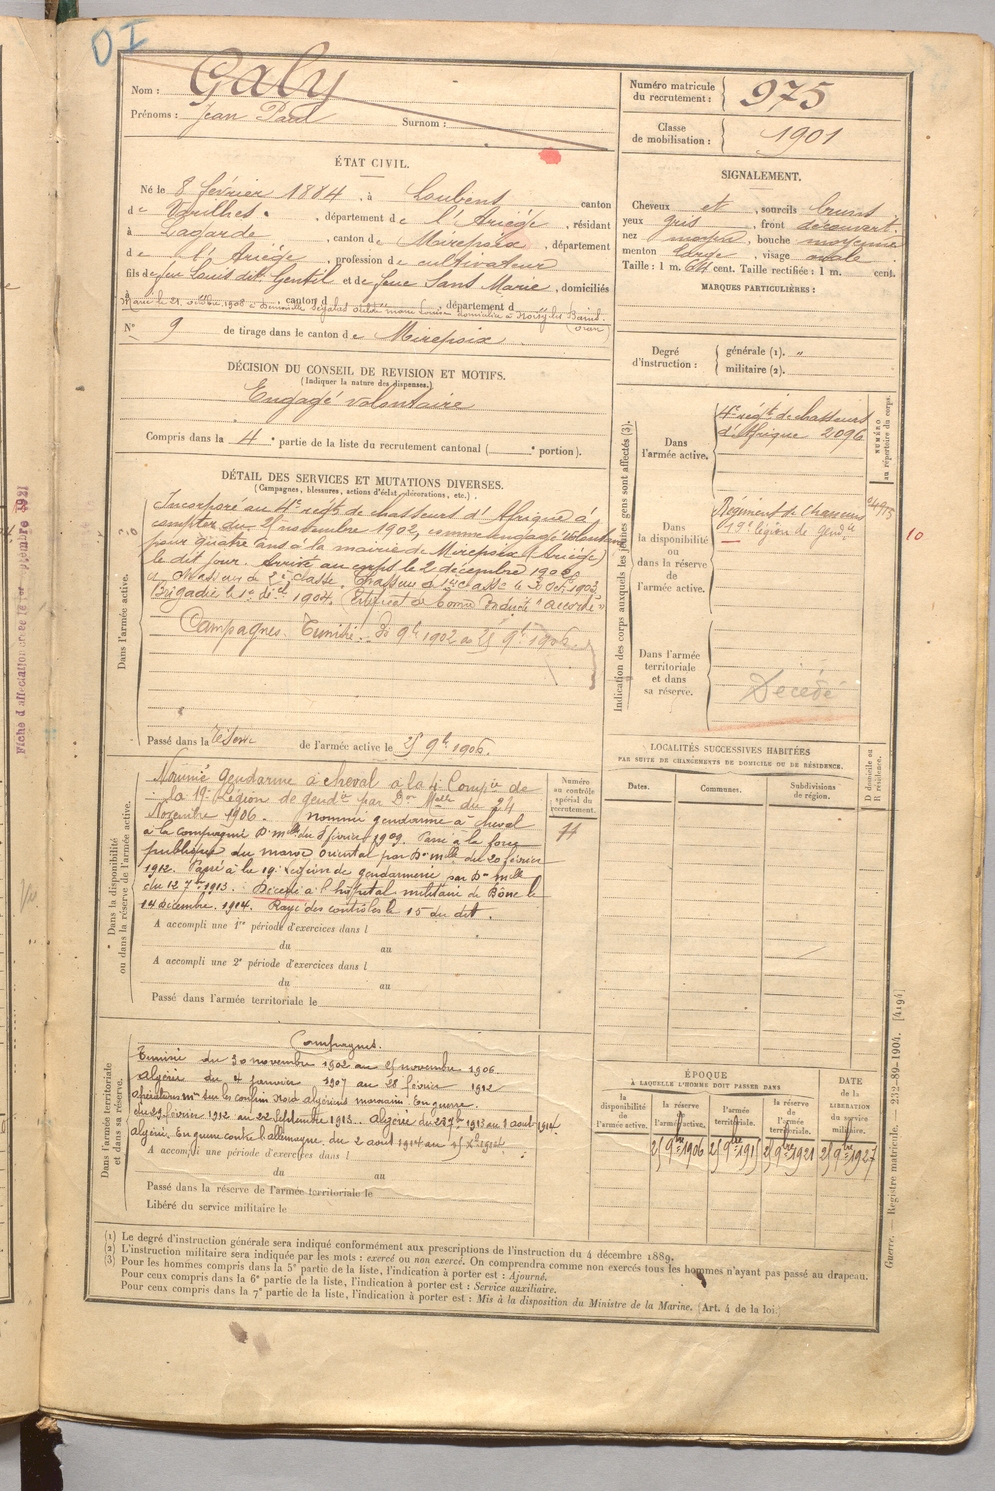 DI
Nom : Galy
Prénoms : Jean Paul Surnom :
Numéro matricule du recrutement : 975
Classe de mobilisation : 1901
ÉTAT CIVIL.
Né le 8 février 1884, à Loubens canton
de Varilhes, département de l'Ariège, résidant
à Lagarde, canton de Mirepoix, département
de l'Ariège, profession de cultivateur
fils de feu Louis dit Gentil et de feue Sans Marie, domiciliés
à canton d département d
Marié le 21 octobre 1908 à
Noisy-les-Bains
(Oran)
N° 9 de tirage dans le canton de Mirepoix
SIGNALEMENT.
Cheveux et, sourcils bruns
yeux gris, front découvert
nez moyen, bouche moyenne
menton large, visage ovale
Taille : 1 m. 64 cent. Taille rectifiée : 1 m. cent.
MARQUES PARTICULIÈRES :
Degré d'instruction : générale (1). "
militaire (2).
DÉCISION DU CONSEIL DE REVISION ET MOTIFS.
(Indiquer la nature des dispenses.)
Engagé volontaire
Compris dans la 4e partie de la liste du recrutement cantonal ( e portion).
DÉTAIL DES SERVICES ET MUTATIONS DIVERSES.
(Campagnes, blessures, actions d'éclat, décorations, etc.)
Dans l'armée active.
Incorporé au 4e régt de chasseurs d'Afrique à
compter du 25 novembre 1902, comme engagé volontaire
pour quatre ans à la mairie de Mirepoix (Ariège)
le dit jour. Arrivé au corps le 2 décembre 1902
Chasseur de 2e classe. Chasseur de 1re classe le 1903
Brigadier le 1904. Certificat de bonne conduite "accordé"
Campagnes. Tunisie: 9bre 1902 au 25 9bre 1906
Passé dans la réserve de l'armée active le 25 9bre 1906.
Indication des corps auxquels les jeunes gens sont affectés (3).
NUMÉRO au répertoire du corps.
Dans l'armée active.
4e régt de chasseurs
d'Afrique 2096
Dans la disponibilité ou dans la réserve de l'armée active.
Régiment de Chasseurs
19e légion de gendie
10
Dans l'armée territoriale et dans sa réserve.
Décédé
Fiche d'affectation
Dans la disponibilité ou dans la réserve de l'armée active.
Nommé Gendarme à cheval à la 4e Compie de
la 19e Légion de gendie par Don Mlle du 24
Novembre 1906. Nommé gendarme à cheval
à la compagnie D. mlle du 8 février 1909. Passé à la force
publique du maroc oriental par Dn mlle du 20 février
1912. Passé à la 19e Légion de gendarmerie par Dn mlle
du 12 7bre 1913. Décédé à l'hôpital militaire de Bône le
14 décembre 1914. Rayé des contrôles le 15 du dit.
A accompli une 1re période d'exercices dans l
du au
A accompli une 2e période d'exercices dans l
du au
Passé dans l'armée territoriale le
Numéro au contrôle spécial du recrutement.
LOCALITÉS SUCCESSIVES HABITÉES
PAR SUITE DE CHANGEMENTS DE DOMICILE OU DE RÉSIDENCE.
Dates. Communes. Subdivisions de région. D domicile ou R résidence.
Dans l'armée territoriale et dans sa réserve.
Campagnes.
Tunisie du 30 novembre 1902 au 25 novembre 1906
Algérie du 4 janvier 1907 au 28 février 1912
Opérations mres sur les confins algériens marocains: En guerre.
du 29 février 1912 au 22 Septembre 1913. Algérie du 23 7bre 1913 au 1 août 1914
Algérie, En guerre contre l'allemagne, du 2 août 1914 au
A accompli une période d'exercices dans l
du au
Passé dans la réserve de l'armée territoriale le
Libéré du service militaire le
ÉPOQUE
À LAQUELLE L'HOMME DOIT PASSER DANS
la disponibilité de l'armée active. la réserve de l'armée active. l'armée territoriale. la réserve de l'armée territoriale.
DATE de la LIBÉRATION du service militaire.
25 9bre 1906 25 9bre 191 25 9bre 1921 25 9bre 1927
(1) Le degré d'instruction générale sera indiqué conformément aux prescriptions de l'instruction du 4 décembre 1889.
(2) L'instruction militaire sera indiquée par les mots : exercé ou non exercé. On comprendra comme non exercés tous les hommes n'ayant pas passé au drapeau.
(3) Pour les hommes compris dans la 5e partie de la liste, l'indication à porter est : Ajourné.
Pour ceux compris dans la 6e partie de la liste, l'indication à porter est : Service auxiliaire.
Pour ceux compris dans la 7e partie de la liste, l'indication à porter est : Mis à la disposition du Ministre de la Marine. (Art. 4 de la loi.)
Guerre. — Registre matricule. 232-89-1904. [4194]